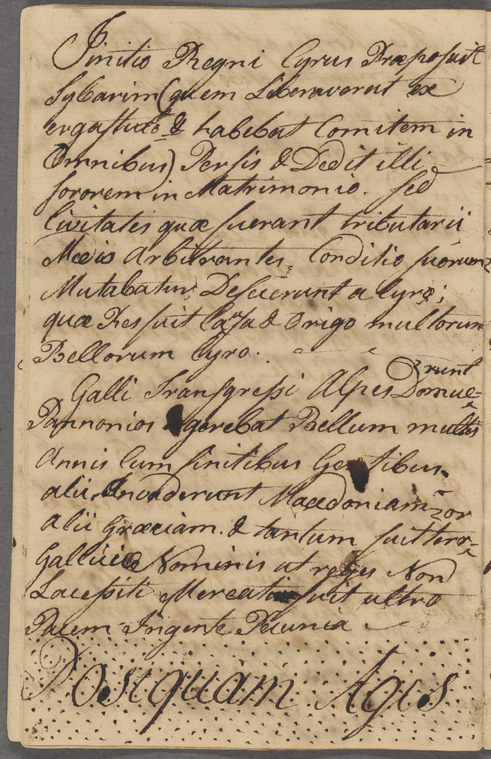 Jinitio Regni Cyrus Præposuit
Sybarim (quem Liberaverat ex
ergastulo & habebat Comitem in
Omnibus) Persis & Dedit illi
sororem in Matrimonio. sed
Civitates quæ fuerant tributarii
Medis Arbitrantes, Conditio suorum
Mutabatur Desciverunt a Cyro;
quæ Res fuit Causa & Origo multorum
Bellorum Cyro.
Galli Transgressi Alpes Domue=
runt
Pannonios gerebat Bellum multis
Annis Cum finitibus Gentibus.
alii Inoaderunt Macedoniam
alii Græciam. & tantum fuit terr=
or
Gallici Nominis ut reges Non
Lacessiti Mercati fuit ultro
Pacem Ingente Pecunia
Postquam Agis